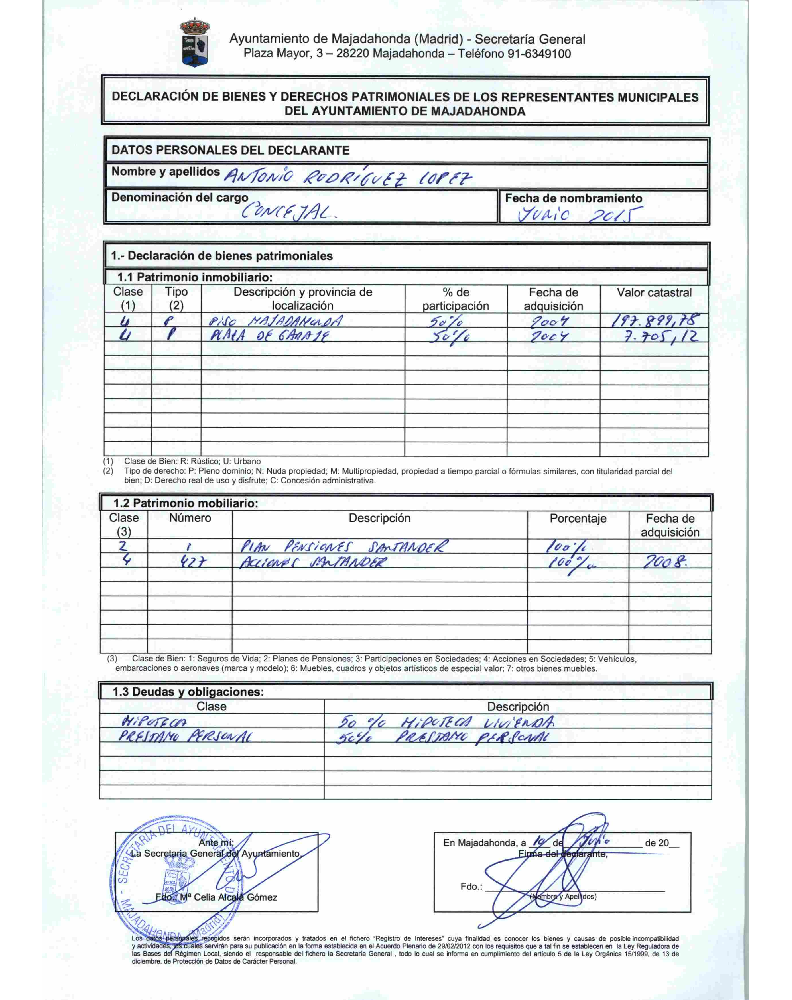 Ayuntamiento de Majadahonda (Madrid) - Secretaría General
Plaza Mayor, 3 – 28220 Majadahonda – Teléfono 91-6349100
DECLARACIÓN DE BIENES Y DERECHOS PATRIMONIALES DE LOS REPRESENTANTES MUNICIPALES
DEL AYUNTAMIENTO DE MAJADAHONDA
DATOS PERSONALES DEL DECLARANTE
Nombre y apellidos ANTONIO RODRÍGUEZ LOPEZ
Denominación del cargo CONCEJAL.
Fecha de nombramiento JUNIO 2015
1.- Declaración de bienes patrimoniales
1.1 Patrimonio inmobiliario:
Clase (1) Tipo (2) Descripción y provincia de localización % de participación Fecha de adquisición Valor catastral
U P PISO MAJADAHONDA 50% 2004 197.899,78
U P PLAZA DE GARAJE 50% 2004 7.705,12
(1) Clase de Bien: R: Rústico; U: Urbano
(2) Tipo de derecho: P: Pleno dominio; N: Nuda propiedad; M: Multipropiedad, propiedad a tiempo parcial o fórmulas similares, con titularidad parcial del
bien; D: Derecho real de uso y disfrute; C: Concesión administrativa
1.2 Patrimonio mobiliario:
Clase (3) Número Descripción Porcentaje Fecha de adquisición
2 1 PLAN PENSIONES SANTANDER 100%
4 427 ACCIONES SANTANDER 100% 2008.
(3) Clase de Bien: 1: Seguros de Vida; 2: Planes de Pensiones; 3: Participaciones en Sociedades; 4: Acciones en Sociedades; 5: Vehículos,
embarcaciones o aeronaves (marca y modelo); 6: Muebles, cuadros y objetos artísticos de especial valor; 7: otros bienes muebles.
1.3 Deudas y obligaciones:
Clase Descripción
HIPOTECA 50 % HIPOTECA VIVIENDA
PRESTAMO PERSONAL 50% PRESTAMO PERSONAL
SECRETARIA DEL AYUNTAMIENTO DE MAJADAHONDA (Madrid)
Ante mí:
La Secretaria General del Ayuntamiento,
Fdo.: Mª Celia Alcalá Gómez
En Majadahonda, a 10 de Julio de 20__
Firma del declarante,
Fdo.:
(Nombre y Apellidos)
Los datos personales recogidos serán incorporados y tratados en el fichero "Registro de Intereses" cuya finalidad es conocer los bienes y causas de posible incompatibilidad
y actividades, los cuales servirán para su publicación en la forma establecida en el Acuerdo Plenario de 29/02/2012 con los requisitos que a tal fin se establecen en la Ley Reguladora de
las Bases del Régimen Local, siendo el responsable del fichero la Secretaría General , todo lo cual se informa en cumplimiento del artículo 5 de la Ley Orgánica 15/1999, de 13 de
diciembre, de Protección de Datos de Carácter Personal.